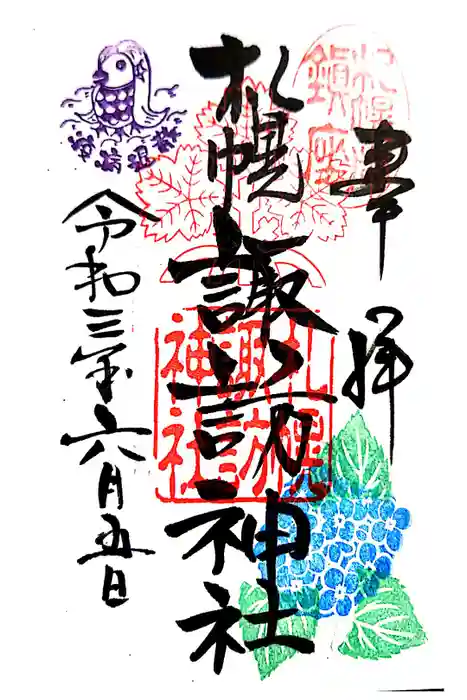 奉拝
札幌鎮座
札幌諏訪神社
札幌
諏訪
神社
令和三年六月五日